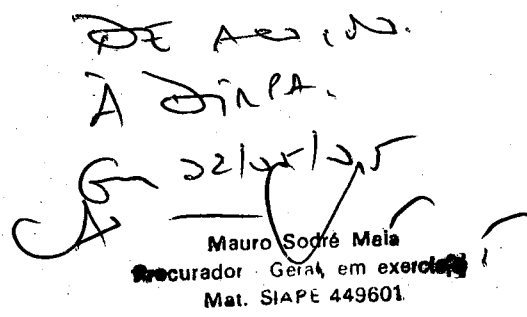 DE ACORDO.
À DIRPA.
Em 22/05/
Mauro Sodré Maia
Procurador Geral, em exercício
Mat. SIAPE 449601